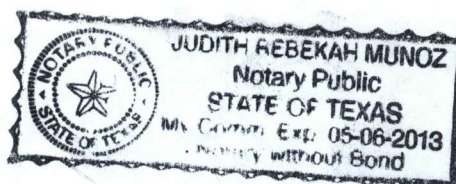 NOTARY PUBLIC
STATE OF TEXAS
JUDITH REBEKAH MUNOZ
Notary Public
STATE OF TEXAS
My Comm. Exp. 05-06-2013
Notary without Bond